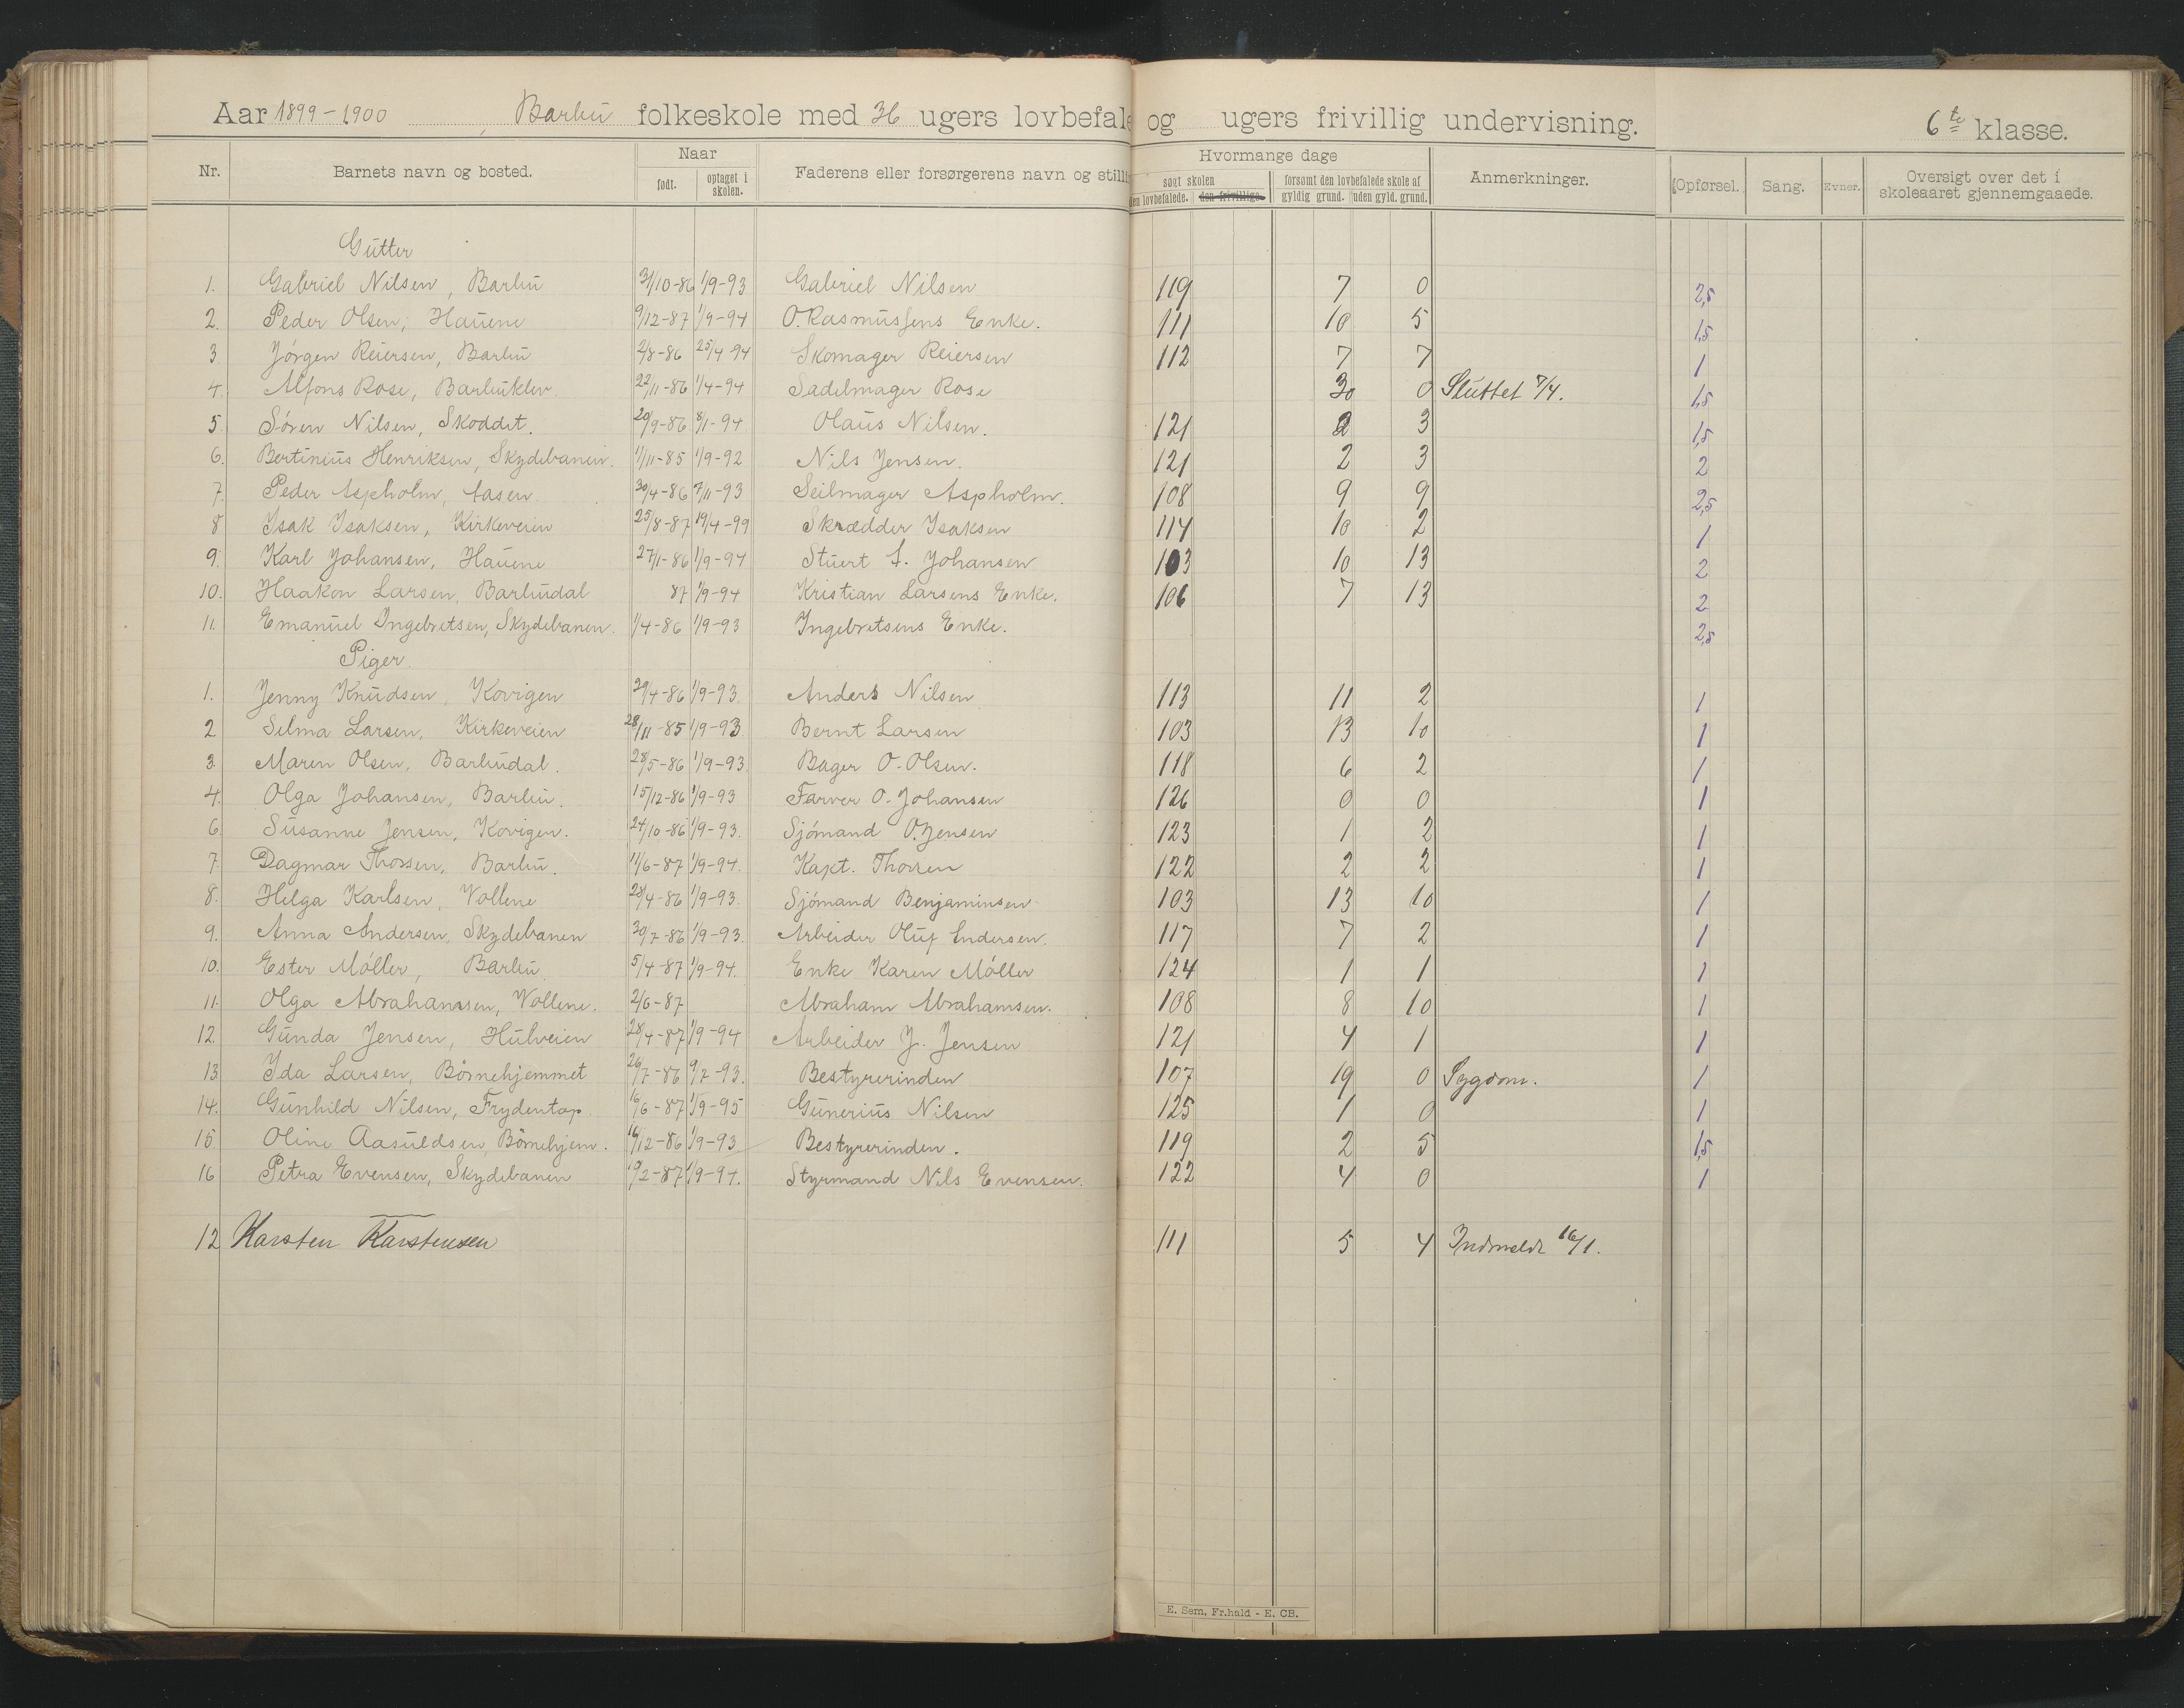 Aar 1899-1900 Barbu folkeskole med 36 ugers lovbefale og ugers frivillig undervisning. 6te klasse.
Nr. Barnets navn og bosted. Naar født. optaget i skolen. Faderens eller forsørgerens navn og stilli Hvormange dage søgt skolen den lovbefalede. den frivillige. forsømt den lovbefalede skole af gyldig grund. uden gyld. grund. Anmerkninger. Opførsel. Sang. Evner. Oversigt over det i skoleaaret gjennemgaaede.
Gutter
1. Gabriel Nilsen, Barbu 31/10-86 1/9-93 Gabriel Nilsen 119 7 0 2,5
2. Peder Olsen, Hauene 9/12-87 1/9-94 O. Rasmussens Enke. 111 10 5 1,5
3. Jörgen Reiersen, Barbu 2/8-86 25/4-94 Skomager Reiersen 112 7 7 1
4. Alfons Rose, Barbuklev 22/11-86 1/4-94 Sadelmager Rose 30 0 Sluttet 7/4. 1,5
5. Sören Nilsen, Skoddet. 20/9-86 8/1-94 Olaus Nilsen. 121 2 3 1,5
6. Bertinius Henriksen, Skydebanen. 1/11-85 1/9-92 Nils Jensen. 121 2 3 2
7. Peder Aspholm, Aasen 30/4-86 7/11-93 Seilmager Aspholm. 108 9 9 2,5
8 Isak Isaksen, Kirkeveien 25/8-87 19/4-99 Skrædder Isaksen 114 10 2 1
9. Karl Johansen, Hauene 27/1-86 1/9-94 Stuert A. Johansen 103 10 13 2
10. Haakon Larsen, Barbudal 87 1/9-94 Kristian Larsens Enke. 106 7 13 2
11. Emanuel Ingebretsen, Skydebanen. 1/4-86 1/9-93 Ingebretsens Enke. 2,5
Piger.
1. Jenny Knudsen, Kovigen 29/4-86 1/9-93 Anders Nilsen 113 11 2 1
2 Selma Larsen, Kirkeveien 28/11-85 1/9-93 Bernt Larsen 103 13 10 1
3. Maren Olsen, Barbudal. 28/5-86 1/9-93 Bager O. Olsen. 118 6 2 1
4. Olga Johansen, Barbu. 15/12-86 1/9-93 Farver O. Johansen 126 0 0 1
6. Susanne Jensen, Kovigen. 24/10-86 1/9-93. Sjömand O. Jensen 123 1 2 1
7. Dagmar Thorsen, Barbu. 11/6-87 1/9-94. Kapt. Thorsen 122 2 2 1
8. Helga Karlsen, Vollene 28/4-86 1/9-93. Sjömand Benjaminsen 103 13 10 1
9. Anna Andersen, Skydebanen 30/7-86 1/9-93. Arbeider Oluf Andersen. 117 7 2 1
10. Ester Möller, Barbu 5/4-87 1/9-94. Enke Karen Möller 124 1 1 1
11. Olga Abrahamsen, Vollene. 2/6-87 Abraham Abrahamsen. 108 8 10 1
12. Gunda Jensen, Hulveien 28/4-87 1/9-94 Arbeider J. Jensen 121 4 1 1
13 Ida Larsen, Börnehjemmet 26/7-86 9/7-93. Bestyrerinden 107 19 0 Sygdom. 1
14. Gunhild Nilsen, Frydentop 16/6-87 1/9-95 Gunerius Nilsen 125 1 0 1
15 Oline Aasuldsen, Börnehjem. 16/12-86 1/9-93 Bestyrerinden. 119 2 5 1,5
16 Petra Evensen, Skydebanen 19/2-87 1/9-94. Styrmand Nils Evensen. 122 4 0 1
12 Karsten Karstensen 111 5 4 Indmeldt 16/1.
E. Sem, Fr.hald - E. CB.